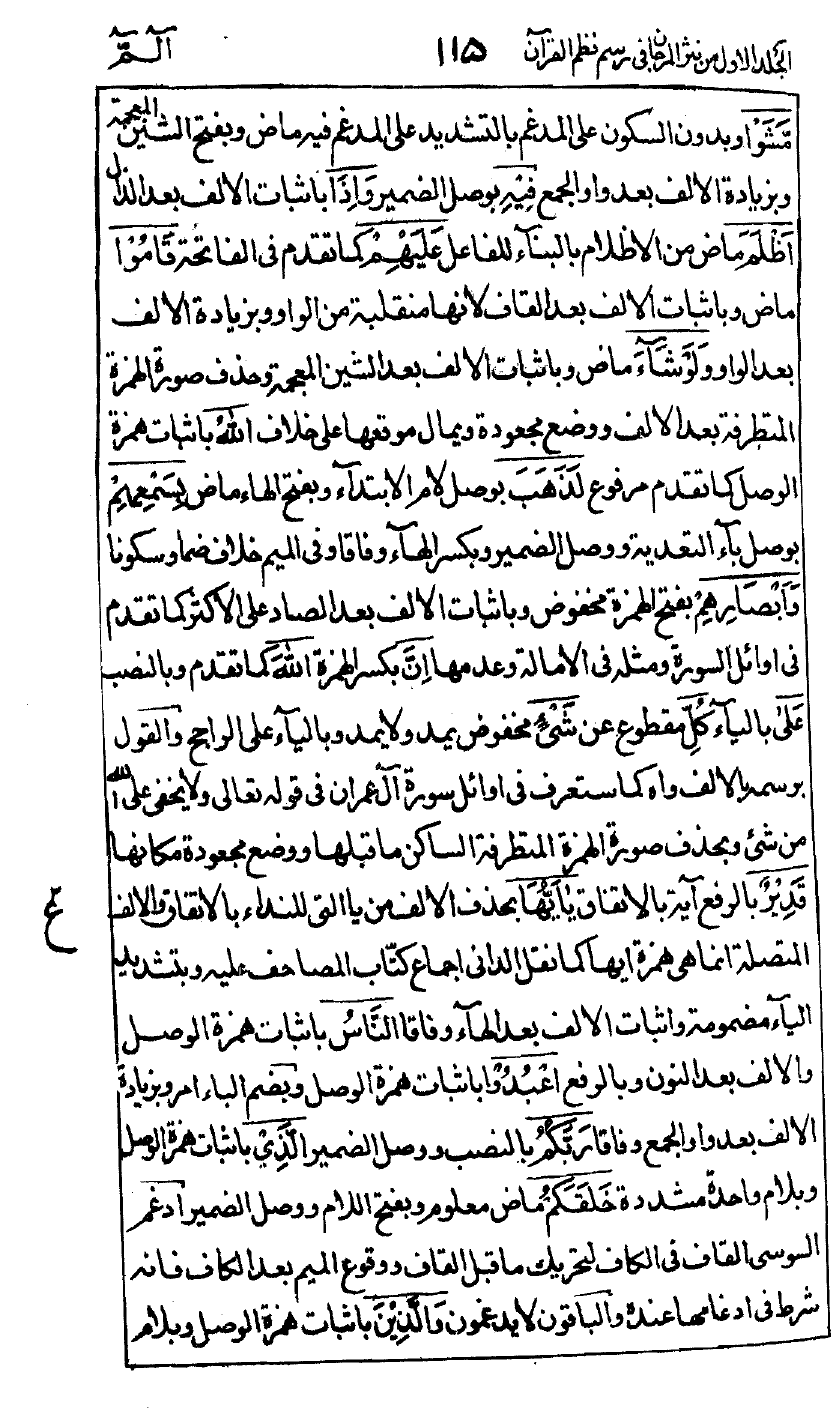 الجلد الاول من نثر المرجان فى رسم نظم القرآن ١١۵ آلـمّٓ
مَّشَوْا وبدون السكون على المدغم بالتشديد على المدغم فيه ماض وبفتح الشين المعجمة
وبزيادة الالف بعد واو الجمع فِيْهِ بوصل الضمير وَاِذَا باثبات الالف بعد الذال
اَظْلَمَ ماض من الاظلام بالبنآء للفاعل عَلَيْهِمْ كما تقدم فى الفاتحة قَامُوْا
ماض وباثبات الالف بعد القاف لانها منقلبة من الواو وبزيادة الالف
بعد الواو وَلَوْ شَآءَ ماض وباثبات الالف بعد الشين المعجمة وحذف صورة الهمزة
المتطرفة بعد الالف ووضع مجعودة ويمال موقعها على خلاف اللّٰهُ باثبات همزة
الوصل كما تقدم مرفوع لَذَهَبَ بوصل لام الابتدآء وبفتح الهاء ماض بِسَمْعِهِمْ
بوصل بآء التعدية ووصل الضمير وبكسر الهآء وفاقا وفى الميم خلاف ضما وسكونا
وَاَبْصَارِهِمْ بفتح الهمزة مخفوض وباثبات الالف بعد الصاد على الاكثر كما تقدم
فى اوائل السورة ومثله فى الامالة وعدمها اِنَّ بكسر الهمزة اللّٰهَ كما تقدم وبالنصب
عَلٰى باليآء كُلِّ مقطوع عن شَىْءٍ مخفوض يمد ولا يمد وبالياء على الراجح والقول
برسمه بالالف واه كما ستعرف فى اوائل سورة آل عمران فى قوله تعالى ولا يخفى على الله
من شئ وبحذف صورة الهمزة المتطرفة الساكن ما قبلها ووضع مجعودة مكانها
قَدِيْرٌ بالرفع آية بالاتفاق يٰاَيُّهَا بحذف الالف من يا التى للنداء بالاتفاق والالف
ع
المتصلة انما هى همزة ايها كما نقل الدانى اجماع كتّاب المصاحف عليه وبتشديد
اليآء مضمومة واثبات الالف بعد الهآء وفاقا النَّاسُ باثبات همزة الوصل
والالف بعد النون وبالرفع اعْبُدُوْا باثبات همزة الوصل وبضم الباء امر وبزيادة
الالف بعد واو الجمع وفاقا رَبَّكُمُ بالنصب ووصل الضمير الَّذِىْ باثبات همزة الوصل
وبلام واحدة مشددة خَلَقَكُمْ ماض معلوم وبفتح اللام ووصل الضمير ادغم
السوسى القاف فى الكاف لتحريك ما قبل القاف ووقوع الميم بعد الكاف فانه
شرط فى ادغامها عنده والباقون لا يدغمون وَالَّذِيْنَ باثبات همزة الوصل وبلام